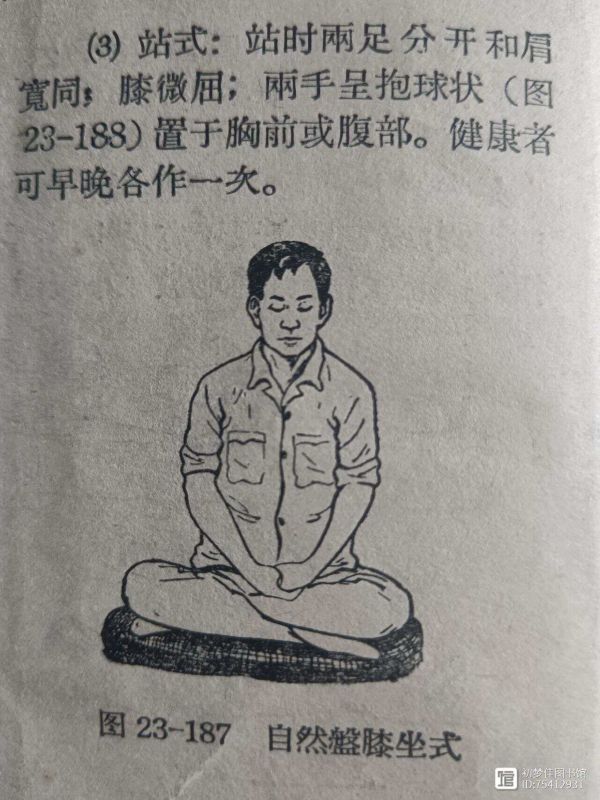 (3) 站式：站时兩足分开和肩
寬同；膝微屈；兩手呈抱球状（图
23-188）置于胸前或腹部。健康者
可早晚各作一次。
图 23-187 自然盤膝坐式
初梦仟图书馆
ID:75412931